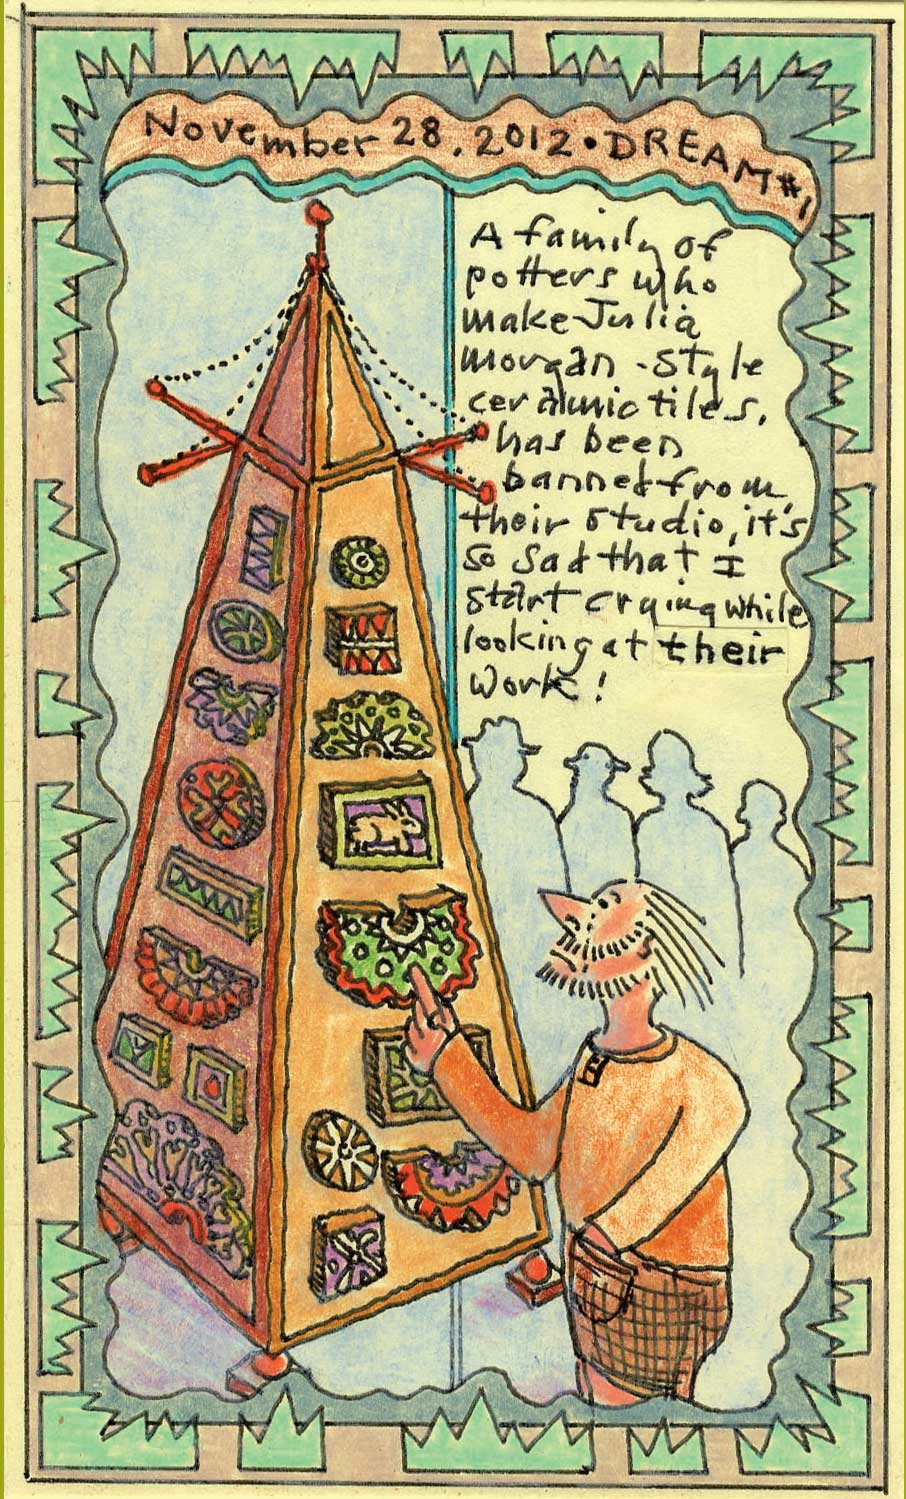 November 28, 2012 • DREAM #1
A family of
potters who
make Julia
Morgan-style
ceramic tiles,
has been
banned from
their studio, it's
so sad that I
start crying while
looking at their
work!